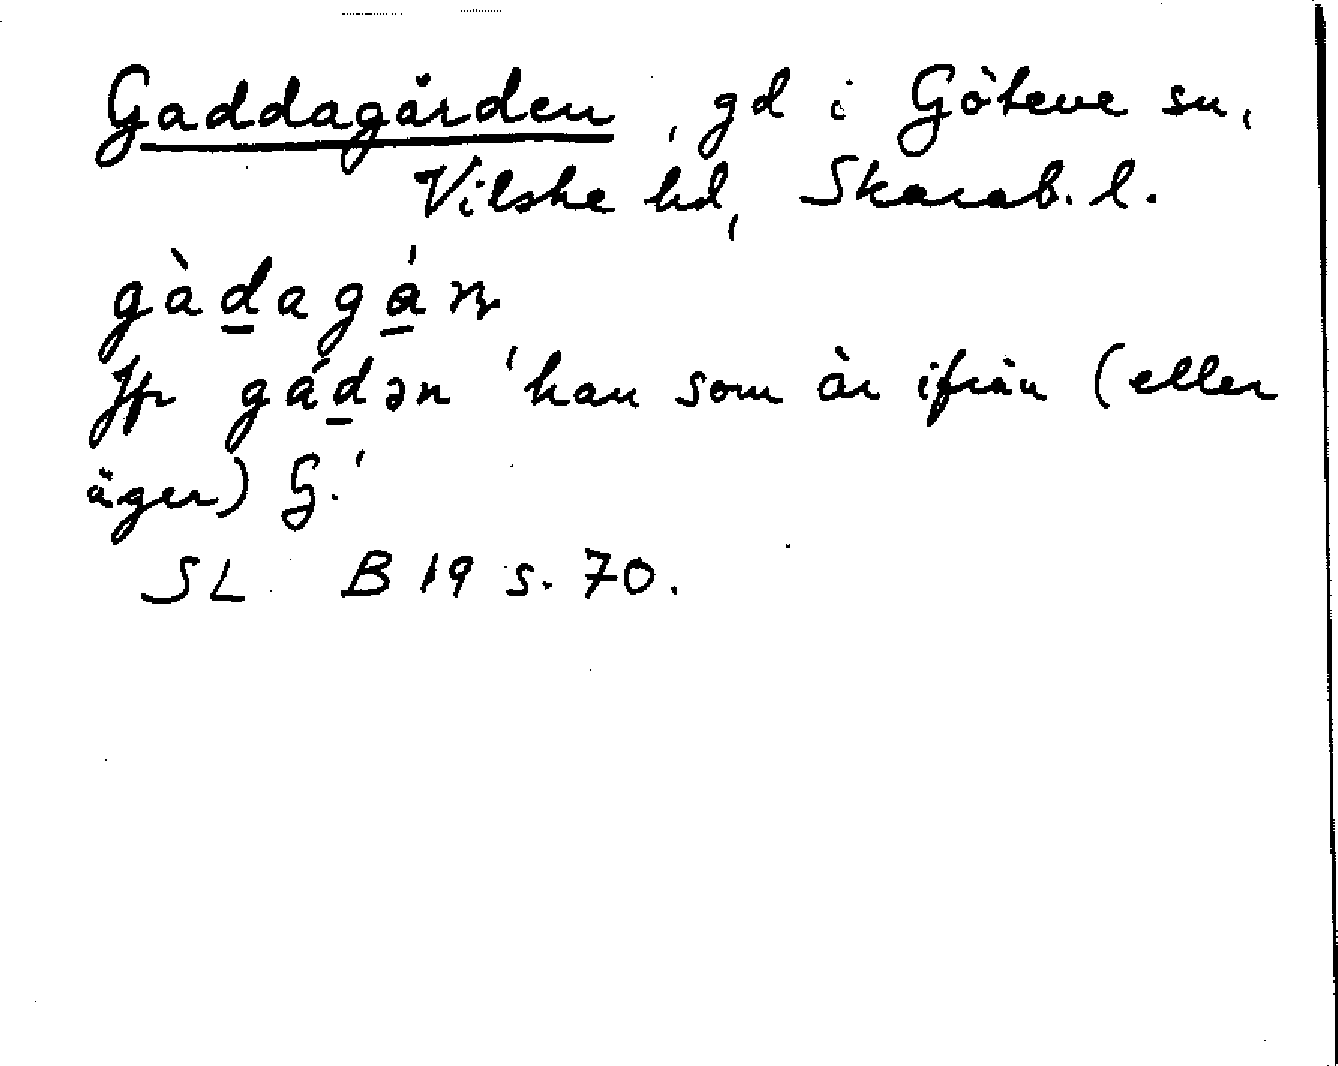 Gaddagården, gd i Göteve sn,
Vilske hd, Skarab. l.
gàd̲agá̲ɳ
Jfr gád̲ən 'han som är ifrån (eller
äger) G.'
SL B 19 s. 70.